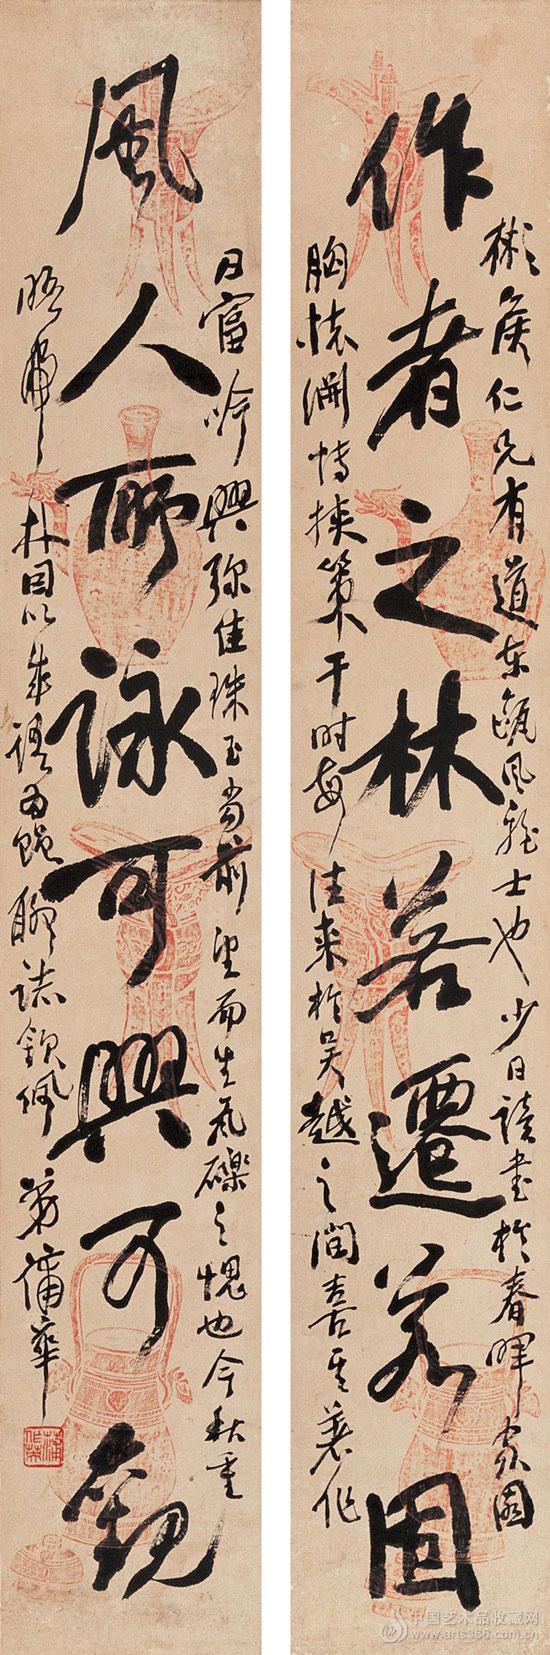 作者之林若遷若固
彬侯仁兄有道東甌風雅士也少日讀書於春暉家園
胸懷淵博挾策干時每往來於吳越之間喜其著作
風人所詠可興可觀
日富吟興彌佳珠玉當前望而生瓦礫之愧也今秋重
晤申 林因以集語留贈聊誌欽佩
弟蒲華
蒲作英
中国艺术品收藏网
www.arts366.com.cn